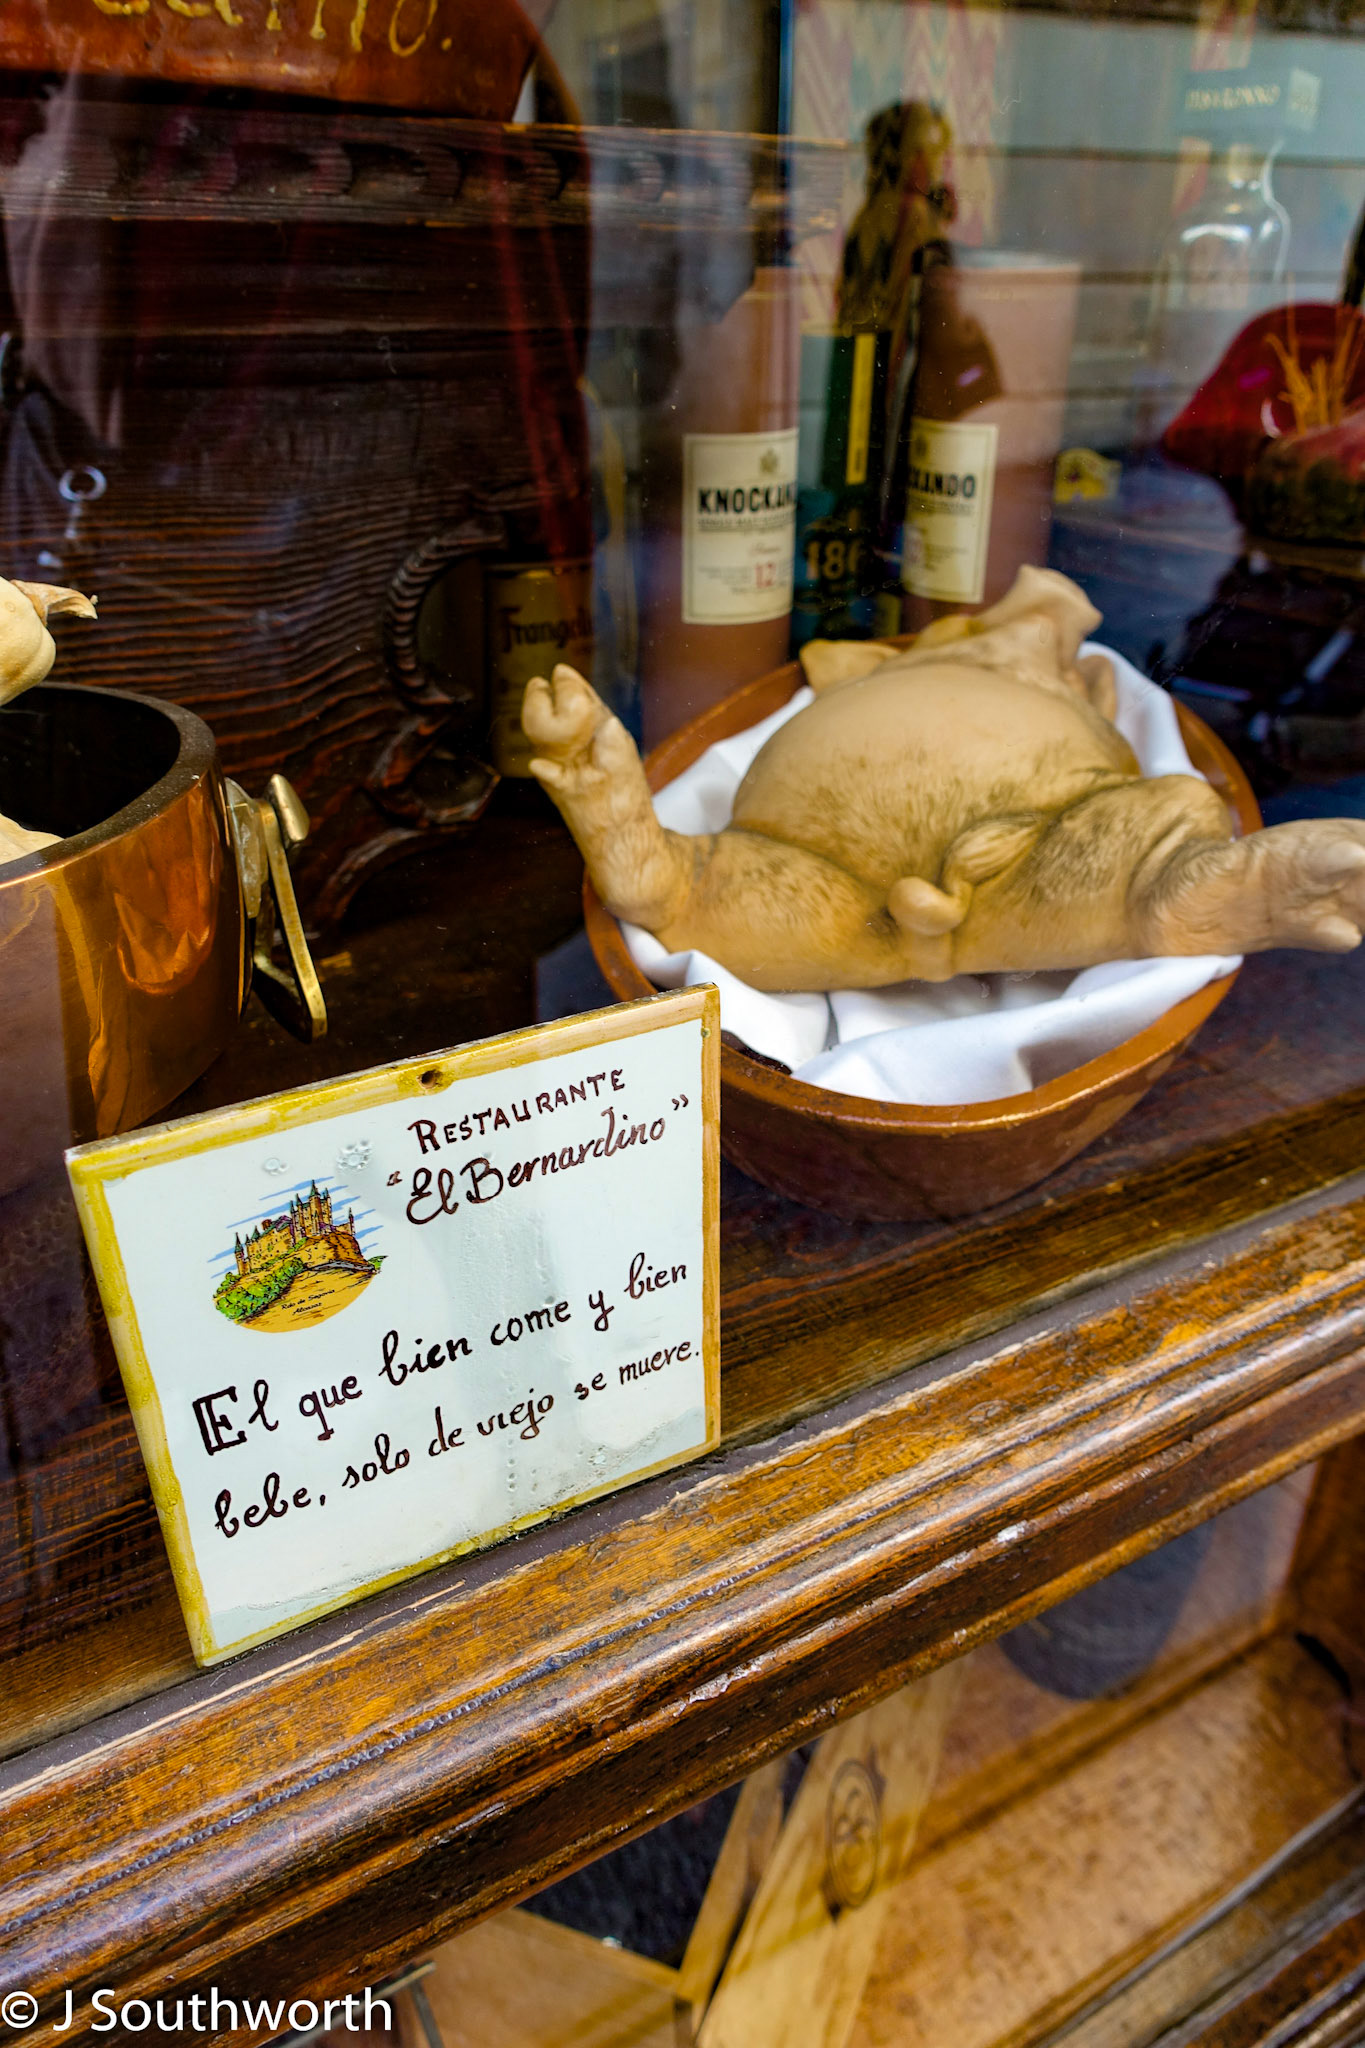 KNOCKANDO
12
186
RESTAURANTE
“El Bernardino”
El que bien come y bien
bebe, solo de viejo se muere.
© J Southworth